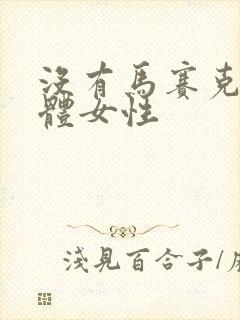 沒有馬賽克
體女性
淺見百合子/